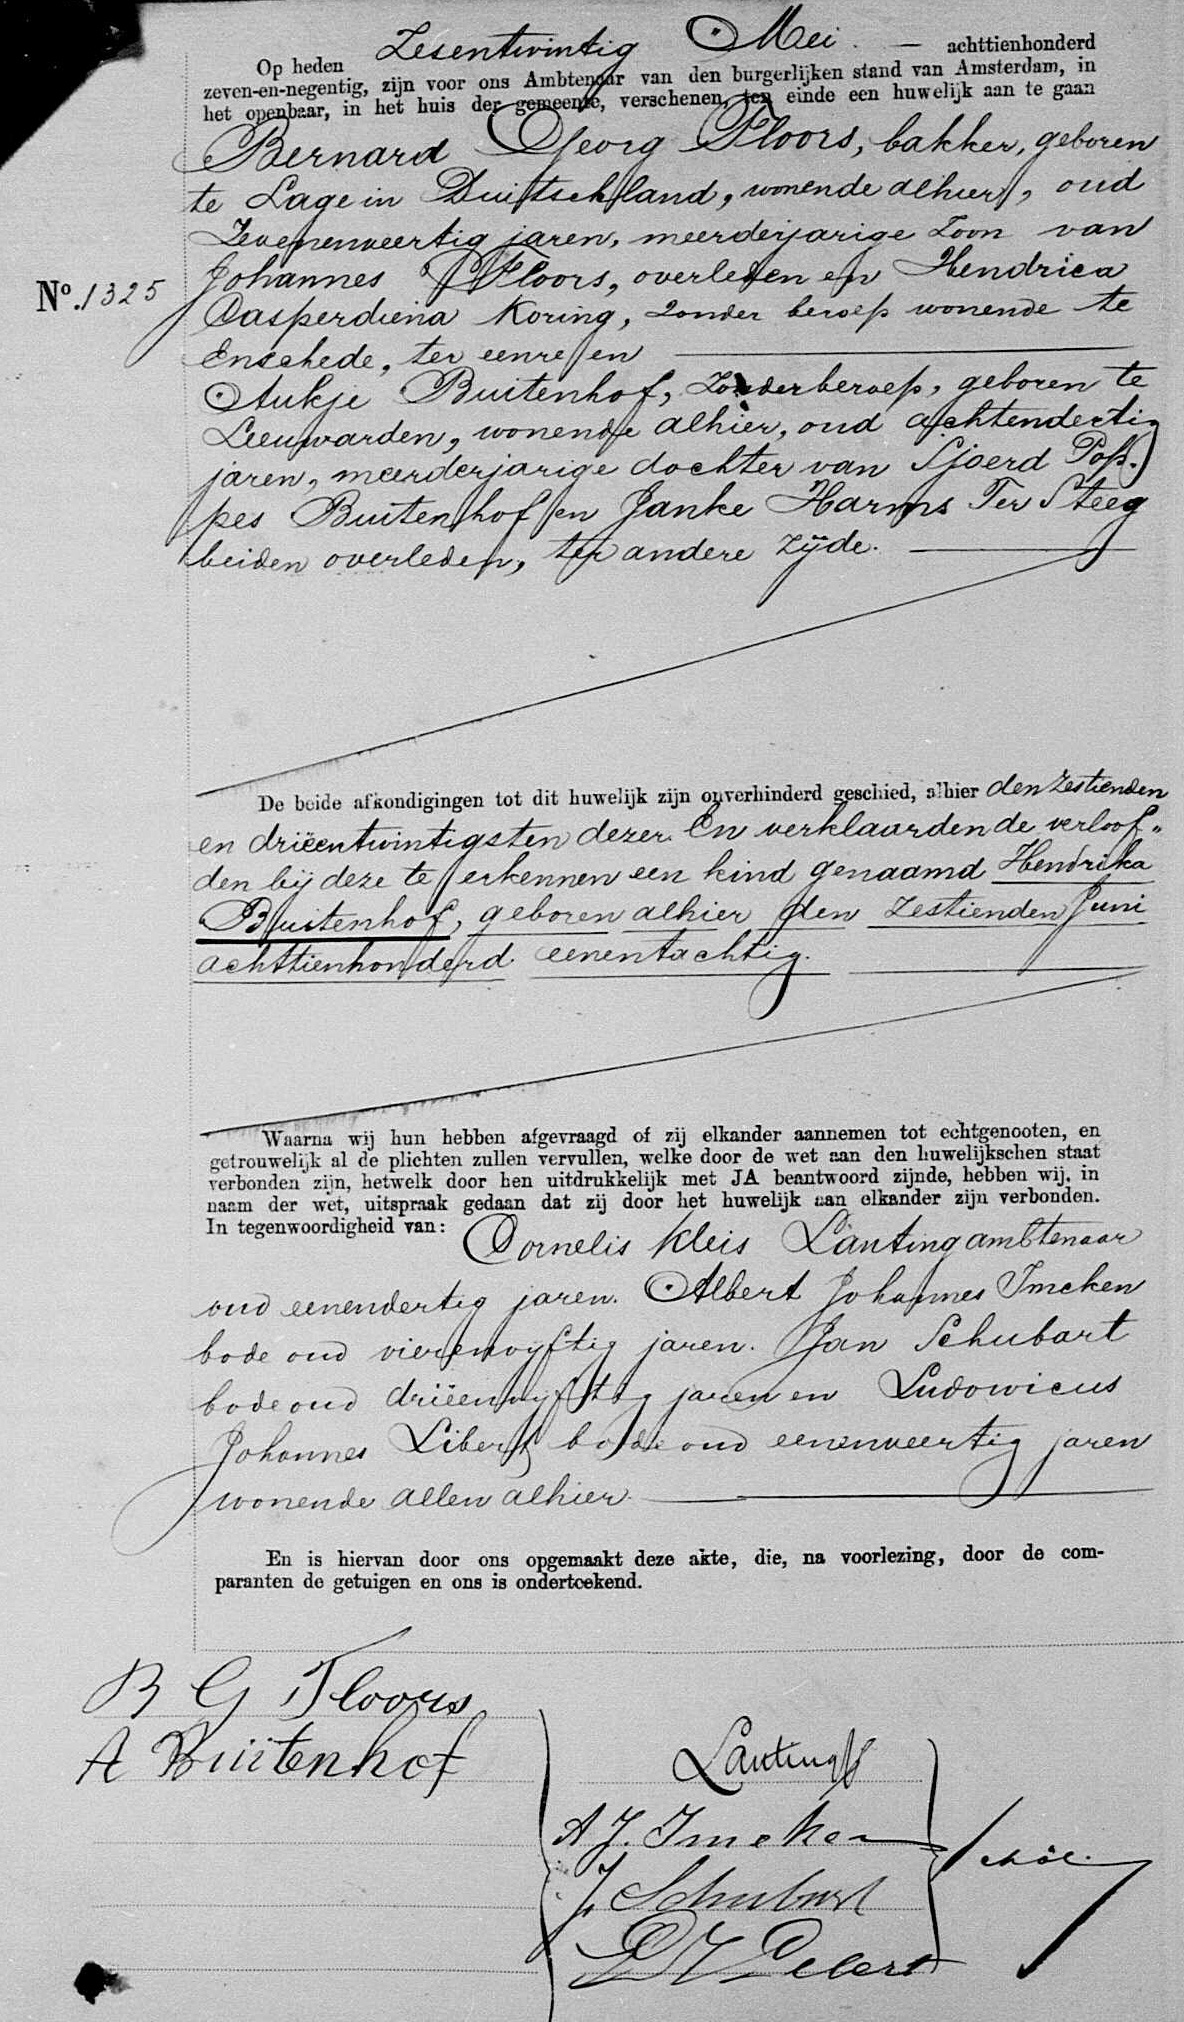 Op heden Zesentwintig Mei. — achttienhonderd
zeven-en-negentig, zijn voor ons Ambtenaar van den burgerlijken stand van Amsterdam, in
het openbaar, in het huis der gemeente, verschenen, ten einde een huwelijk aan te gaan
Bernard Georg Floors, bakker, geboren
te Lage in Duitschland, wonende alhier, oud
Zevenenveertig jaren, meerderjarige Zoon van
Johannes Floors, overleden en Hendrica
No. 1325
Casperdiena Koring, zonder beroep wonende te
Enschede, ter eenre en
Aukje Buitenhof, Zonder beroep, geboren te
Leeuwarden, wonende alhier, oud achtendertig
jaren, meerderjarige dochter van Sjoerd Pop-
pes Buitenhof en Janke Harms Ter Steeg
beiden overleden, ter andere zijde.
De beide afkondigingen tot dit huwelijk zijn onverhinderd geschied, alhier den Zestienden
en drieentwintigsten dezer. En verklaarden de verloof-
den bij deze te erkennen een kind genaamd Hendrika
Buitenhof, geboren alhier den zestienden Juni
achttienhonderd eenentachtig.
Waarna wij hun hebben afgevraagd of zij elkander aannemen tot echtgenooten, en
getrouwelijk al de plichten zullen vervullen, welke door de wet aan den huwelijkschen staat
verbonden zijn, hetwelk door hen uitdrukkelijk met JA beantwoord zijnde, hebben wij, in
naam der wet, uitspraak gedaan dat zij door het huwelijk aan elkander zijn verbonden.
In tegenwoordigheid van: Cornelis Kleis Lanting ambtenaar
oud eenendertig jaren. Albert Johannes Imeken
bode oud vierenvijftig jaren. Jan Schubart
bode oud drieenvijftig jaren en Ludowicus
Johannes Libert bode oud eenenveertig jaren
wonende allen alhier.
En is hiervan door ons opgemaakt deze akte, die, na voorlezing, door de com-
paranten de getuigen en ons is onderteekend.
B G Floors
A Buitenhof
Lanting
A J. Imeken
J. Schubart